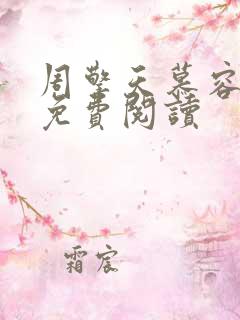 周擎天慕容
免費閱讀
霜宸